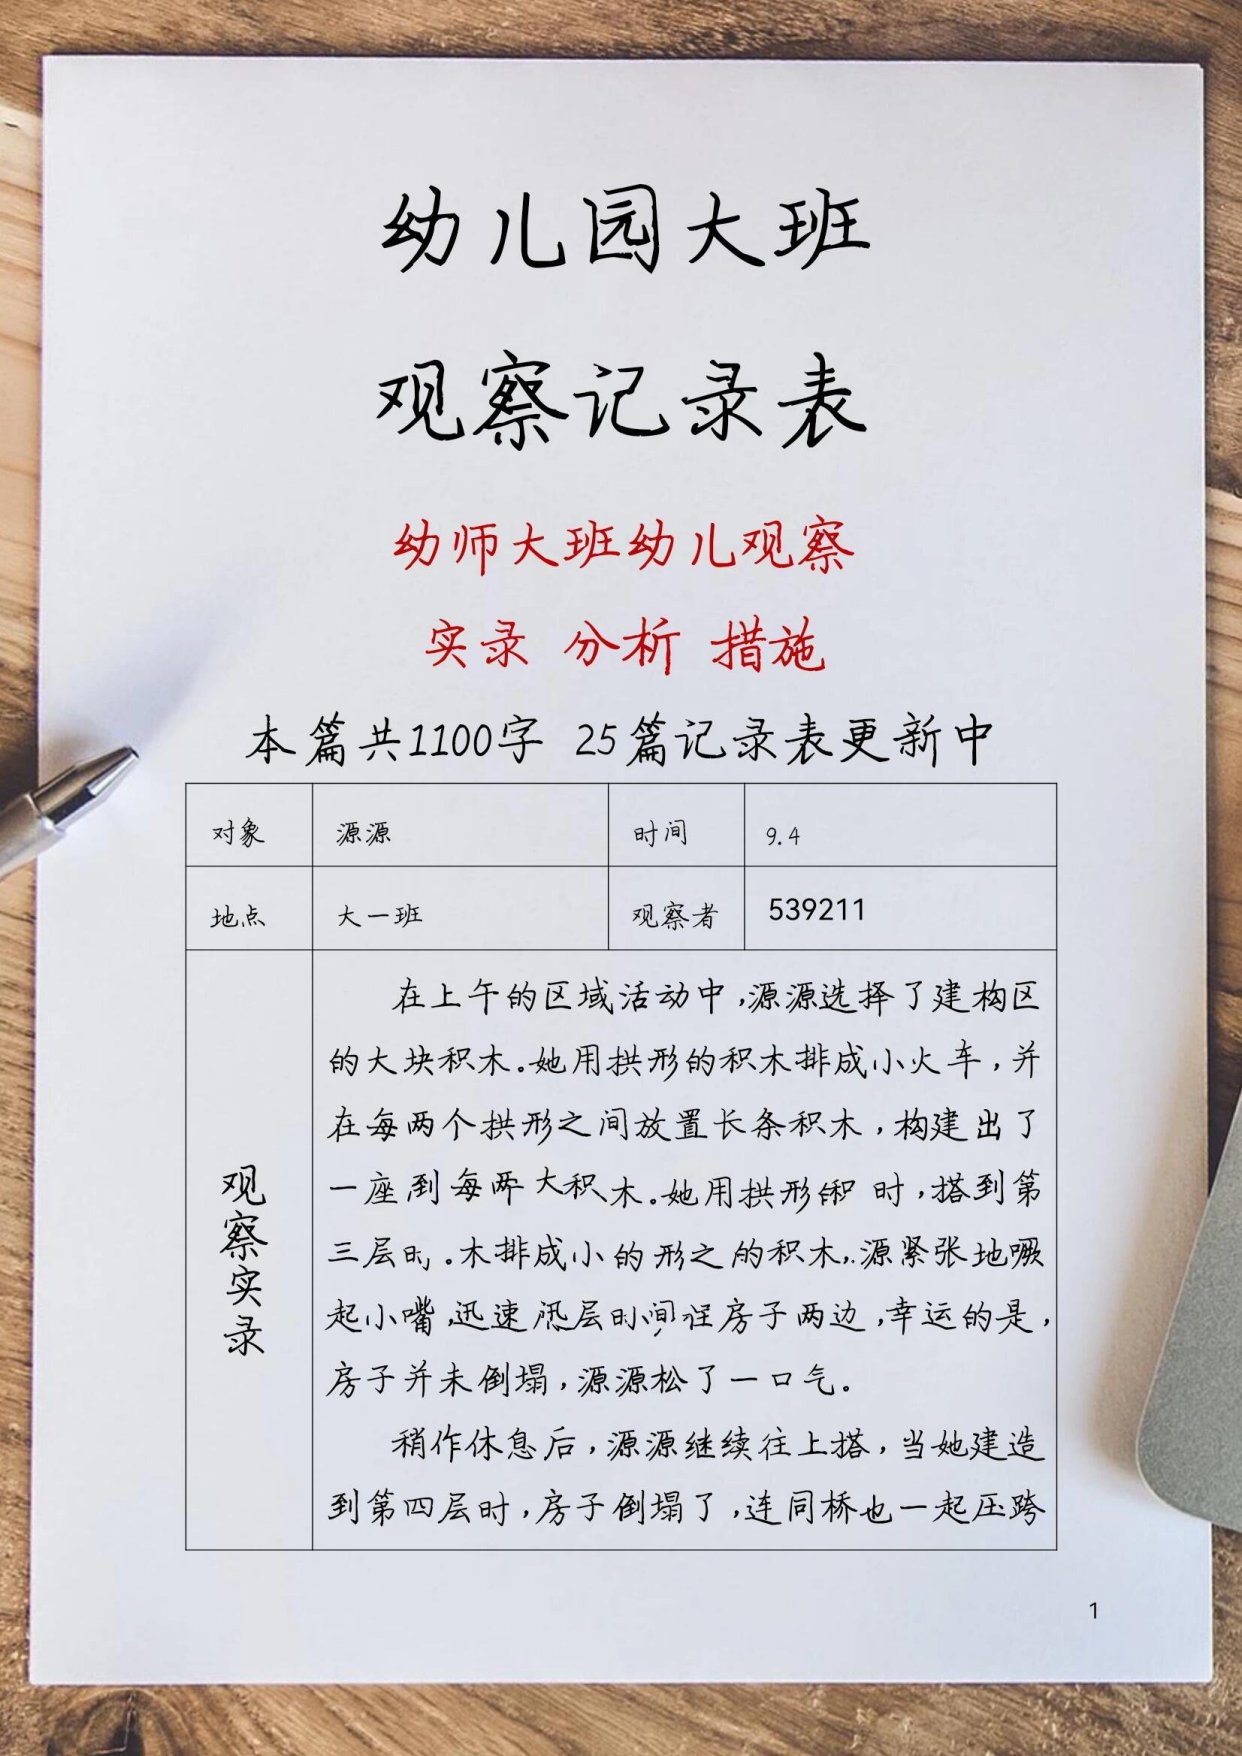 幼儿园大班
观察记录表
幼师大班幼儿观察
实录 分析 措施
本篇共1100字 25篇记录表更新中
对象 源源 时间 9.4
地点 大一班 观察者 539211
观察实录
在上午的区域活动中,源源选择了建构区
的大块积木。她用拱形的积木排成小火车,并
在每两个拱形之间放置长条积木,构建出了
一座到每两大积木。她用拱形 时,搭到第
三层 。木排成小的形之的积木,.源紧张地噘
起小嘴,迅速 层时间 房子两边,幸运的是,
房子并未倒塌,源源松了一口气。
稍作休息后,源源继续往上搭,当她建造
到第四层时,房子倒塌了,连同桥也一起压跨
1